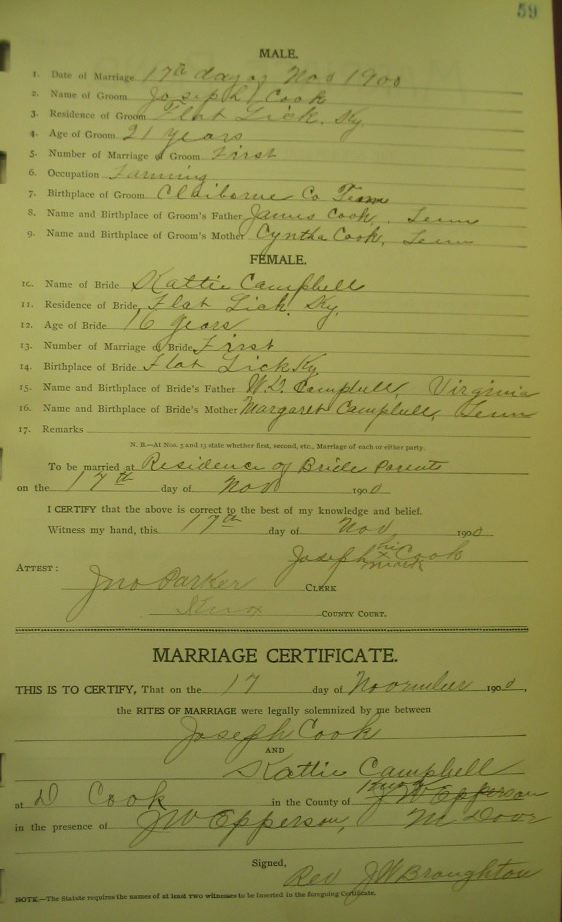 59
MALE.
1. Date of Marriage 17th day of Nov 1900
2. Name of Groom Joseph Cook
3. Residence of Groom Flat Lick, Ky.
4. Age of Groom 21 years
5. Number of Marriage of Groom First
6. Occupation Farming
7. Birthplace of Groom Claiborne Co Tenn
8. Name and Birthplace of Groom's Father James Cook, Tenn
9. Name and Birthplace of Groom's Mother Cyntha Cook, Tenn
FEMALE.
10. Name of Bride Kattie Campbell
11. Residence of Bride Flat Lick, Ky.
12. Age of Bride 16 years
13. Number of Marriage of Bride First
14. Birthplace of Bride Flat Lick Ky
15. Name and Birthplace of Bride's Father Campbell, Virginia
16. Name and Birthplace of Bride's Mother Margaret Campbell, Tenn
17. Remarks
N. B.—At Nos. 5 and 13 state whether first, second, etc., Marriage of each or either party.
To be married at Residence of Bride Parents
on the 17th day of Nov 1900
I CERTIFY that the above is correct to the best of my knowledge and belief.
Witness my hand, this 17th day of Nov 1900
Joseph his x mark Cook
ATTEST:
Jno Parker CLERK
Knox COUNTY COURT.
MARRIAGE CERTIFICATE.
THIS IS TO CERTIFY, That on the 17 day of November 1900,
the RITES OF MARRIAGE were legally solemnized by me between
Joseph Cook
AND
Kattie Campbell
at D Cook in the County of Knox J W Epperson
in the presence of J W Epperson,
Signed,
Rev J W Broughton
NOTE.—The Statute requires the names of at least two witnesses to be inserted in the foregoing Certificate.